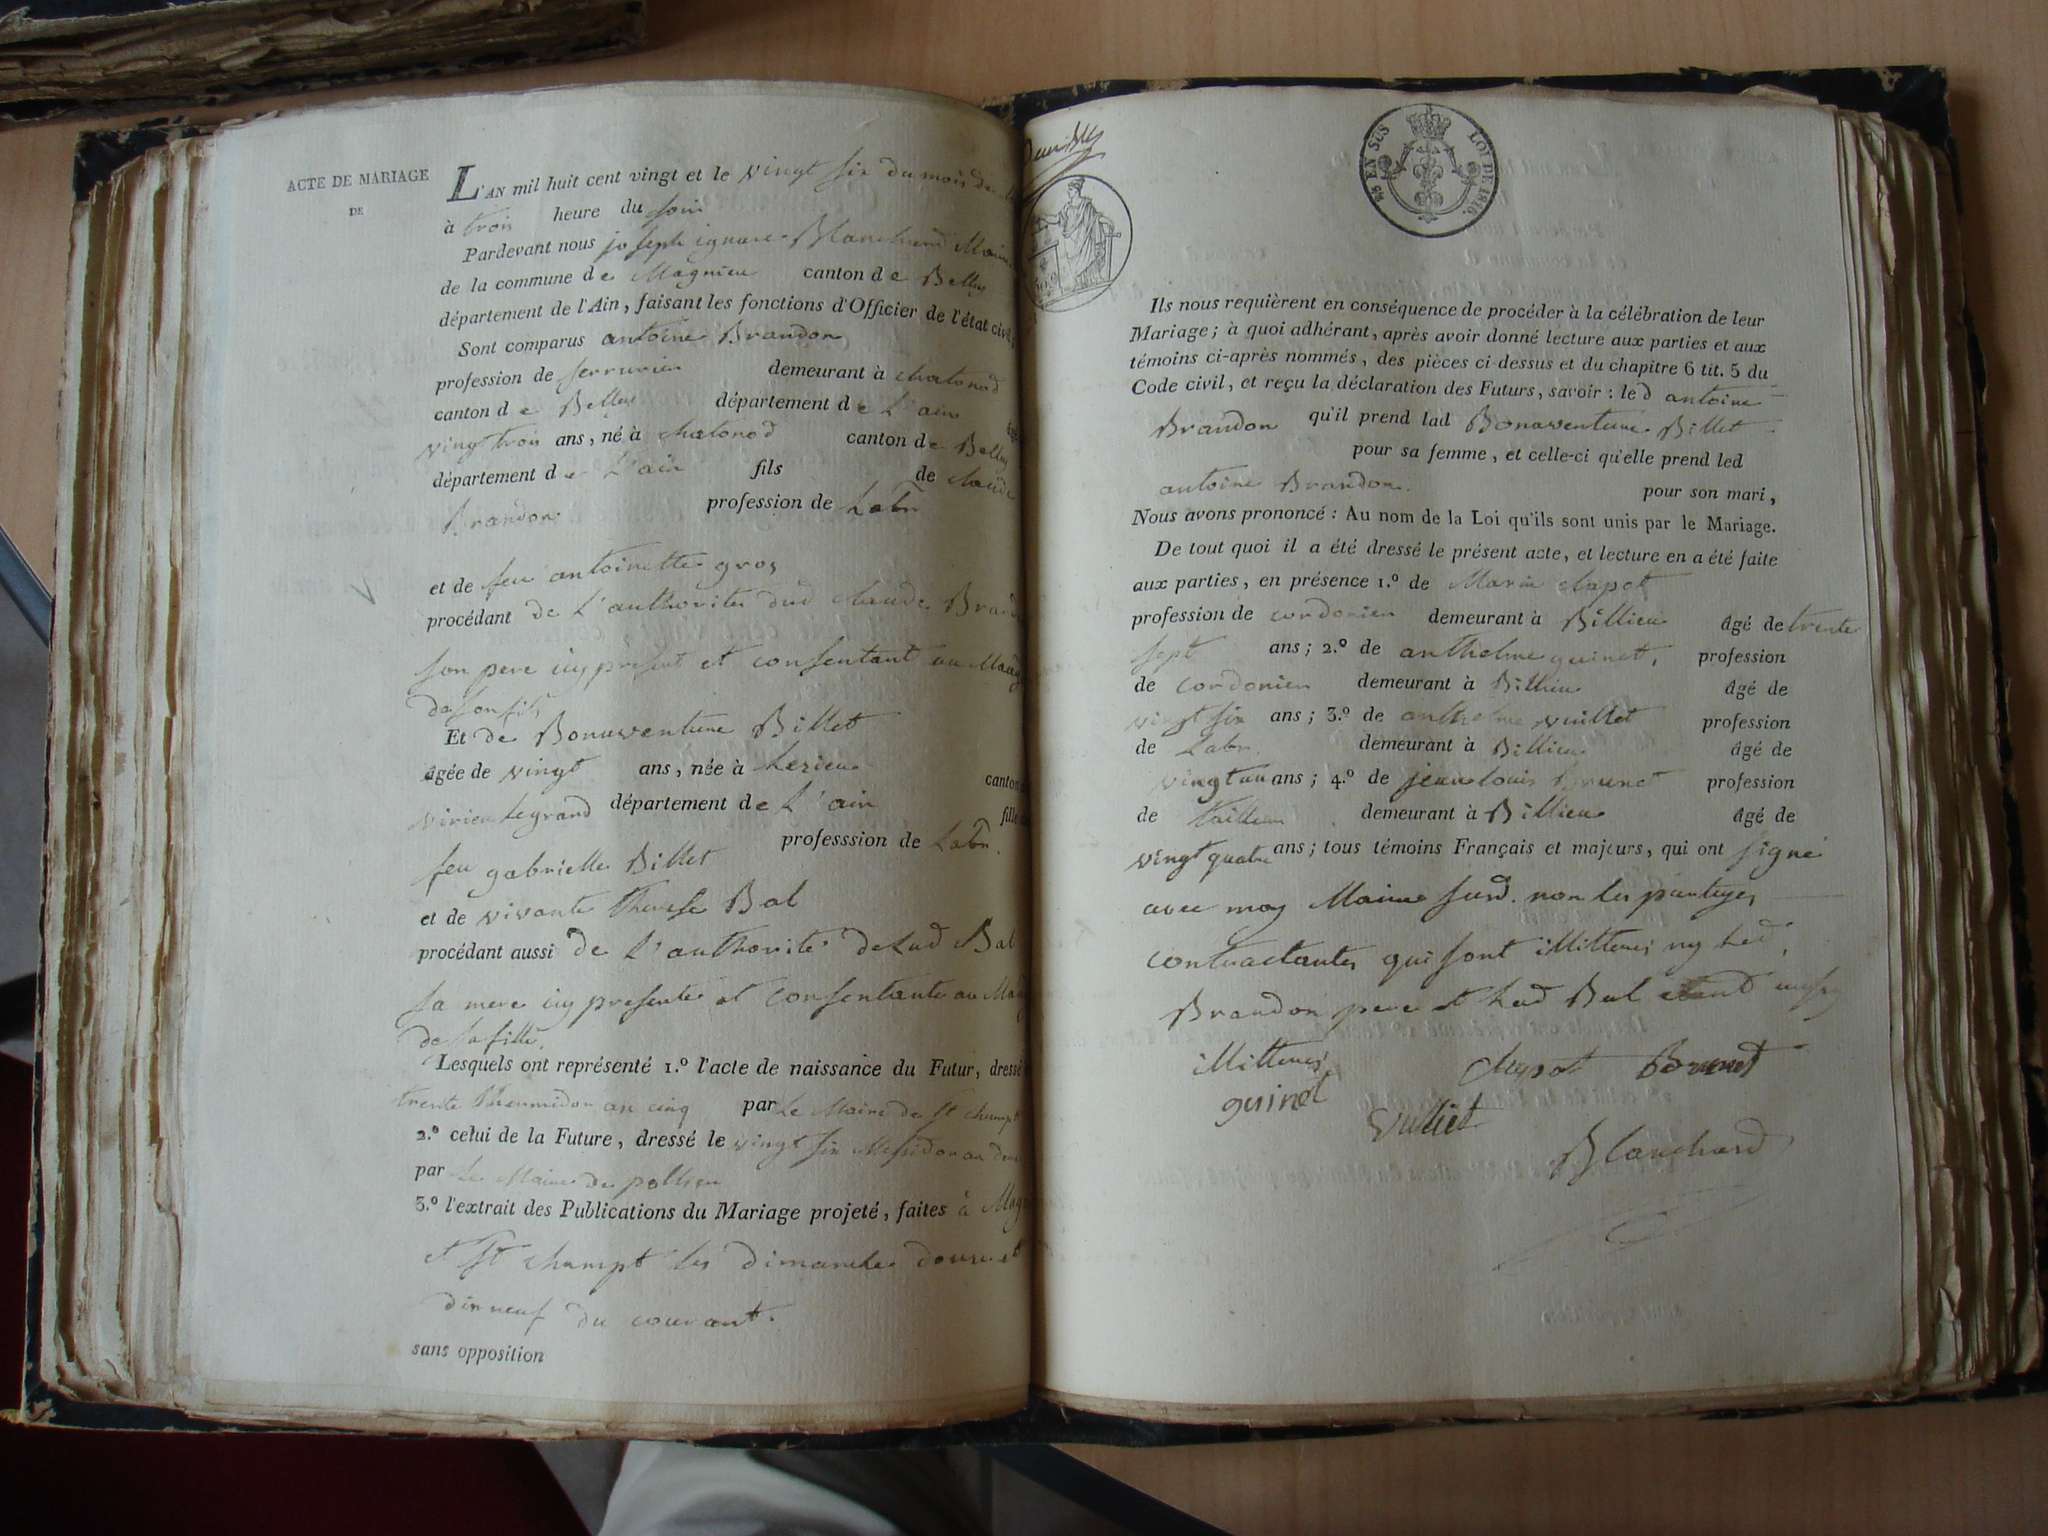 ACTE DE MARIAGE
DE
L'AN mil huit cent vingt et le vingt six du mois de
à trois heure du soir
Pardevant nous joseph ignace Blanchard Maire
de la commune de Magnieu canton de Belley
département de l'Ain, faisant les fonctions d'Officier de l'état civil,
Sont comparus antoine Brandon
profession de serrurier demeurant à chatonod
canton de Belley département de L'ain
vingt trois ans, né à chatonod canton de Belley
département de L'ain fils de claude
Brandon profession de Labr
et de feu antoinette gros
procédant de L'authorité dud claude Brand
son pere icy présent et consentant au Mariag
de son fils
Et de Bonaventure Billet
âgée de vingt ans, née à Lezieu canton
virieu Legrand département de L'ain fille
feu gabrielle Billet professsion de Labr.
et de vivante Therese Bal
procédant aussi de L'authorité de Lad Bal
sa mere icy presente et consentante au Mariag
de sa fille.
Lesquels ont représenté 1.º l'acte de naissance du Futur, dressé
trente Thermidor an cinq par Le Maire de St champt
2.º celui de la Future, dressé le vingt six Messidor an
par Le Maire de pollieu
3.º l'extrait des Publications du Mariage projeté, faites à Mag
et St champt les dimanche douze et
dix neuf du courant.
sans opposition
EN SUS LOI DE 1816.
Ils nous requièrent en conséquence de procéder à la célébration de leur
Mariage; à quoi adhérant, après avoir donné lecture aux parties et aux
témoins ci-après nommés, des pièces ci-dessus et du chapitre 6 tit. 5 du
Code civil, et reçu la déclaration des Futurs, savoir: led antoine
Brandon qu'il prend lad Bonaventure Billet
pour sa femme, et celle-ci qu'elle prend led
antoine Brandon pour son mari,
Nous avons prononcé: Au nom de la Loi qu'ils sont unis par le Mariage.
De tout quoi il a été dressé le présent acte, et lecture en a été faite
aux parties, en présence 1.º de Marin clapot
profession de cordonier demeurant à Billieu âgé de trente
sept ans; 2.º de anthelme guinet, profession
de cordonier demeurant à Billieu âgé de
vingt six ans; 3.º de anthelme vuillet profession
de Labr. demeurant à Billieu âgé de
vingt un ans; 4.º de jean louis Brunet profession
de tailleur demeurant à Billieu âgé de
vingt quatre ans; tous témoins Français et majeurs, qui ont signé
avec moy Maire susd. non les partyes
contractantes qui sont illitteres ny led
Brandon pere et Lad Bal etant aussy
illitteres
clapot Brunet
guinet
Vulliet
Blanchard